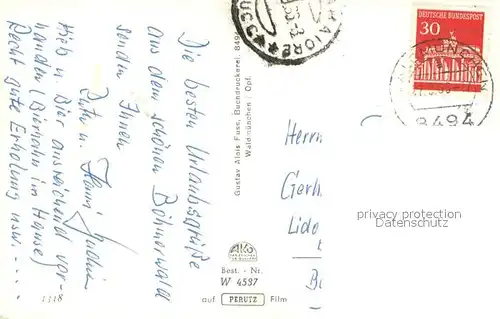 Die besten Urlaubsgrüße
aus dem schönen Böhmerwald
senden Ihnen
Ruth u.
Hieb u Bier ausreichend vor-
handen (Bierhahn im Hause)
Recht gute Erholung usw. - . . .
1318
Gustav Alois Fuss, Buchdruckerei, 849
Waldmünchen Opf.
AKO
Best. - Nr.
W 4537
auf PERUTZ Film
DEUTSCHE BUNDESPOST
30
8494
Herrn
Gerh
Lido
privacy protection
Datenschutz